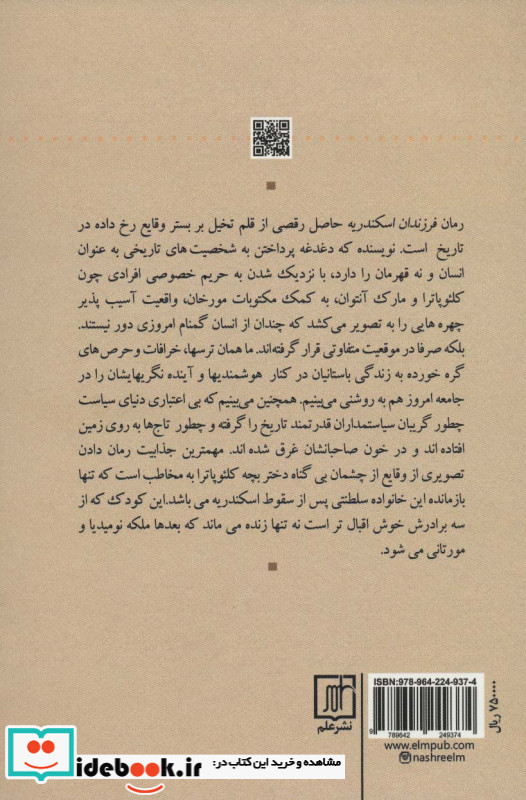 رمان فرزندان اسکندریه حاصل رقصی از قلم تخیل بر بستر وقایع رخ داده در
تاریخ است. نویسنده که دغدغه پرداختن به شخصیت های تاریخی به عنوان
انسان و نه قهرمان را دارد، با نزدیک شدن به حریم خصوصی افرادی چون
کلئوپاترا و مارک آنتوان، به کمک مکتوبات مورخان، واقعیت آسیب پذیر
چهره هایی را به تصویر می‌کشد که چندان از انسان گمنام امروزی دور نیستند.
بلکه صرفا در موقعیت متفاوتی قرار گرفته‌اند. ما همان ترسها، خرافات و حرص های
گره خورده به زندگی باستانیان در کنار هوشمندیها و آینده نگریهایشان را در
جامعه امروز هم به روشنی می‌بینیم. همچنین می‌بینیم که بی اعتباری دنیای سیاست
چطور گریبان سیاستمداران قدرتمند تاریخ را گرفته و چطور تاج‌ها به روی زمین
افتاده اند و در خون صاحبانشان غرق شده اند. مهمترین جذابیت رمان دادن
تصویری از وقایع از چشمان بی گناه دختر بچه کلئوپاترا به مخاطب است که تنها
بازمانده این خانواده سلطنتی پس از سقوط اسکندریه می باشد.این کودک که از
سه برادرش خوش اقبال تر است نه تنها زنده می ماند که بعدها ملکه نومیدیا و
مورتانی می شود.
ISBN:978-964-224-937-4
9 789642 249374
۷۵۰۰۰۰ ریال
www.elmpub.com
nashreelm
علم
نشرعلم
idebook.ir
مشاهده و خرید این کتاب در: